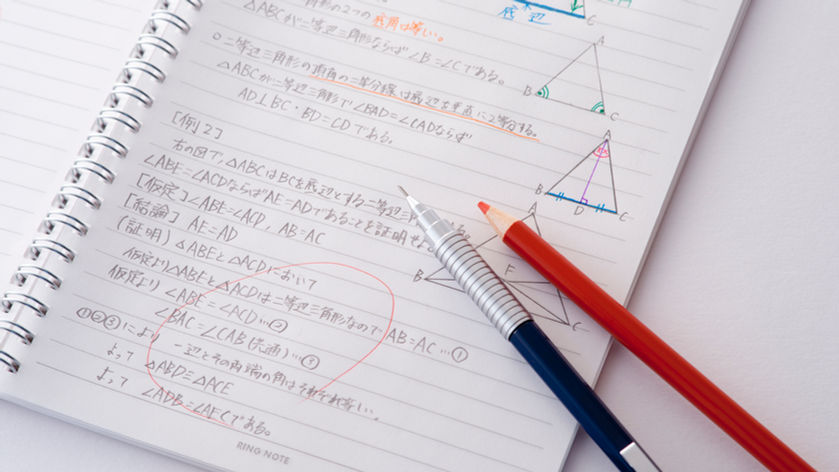 角形の2つの底角は等しい。
△ABCが二等辺三角形ならば∠B=∠Cである。
○二等辺三角形の頂角の二等分線は底辺を垂直に2等分する。
△ABCが二等辺三角形で∠BAD=∠CADならば
AD⊥BC・BD=CDである。
[例2]
右の図で、△ABCはBCを底辺とする二等辺三
∠ABE=∠ACDならばAE=ADであることを証明せよ
[仮定] ∠ABE=∠ACD, AB=AC
[結論] AE=AD
(証明) △ABEと△ACDにおいて
仮定より△ABEと△ACDは二等辺三角形なので AB=AC…①
仮定より ∠ABE=∠ACD…②
∠BAC=∠CAB(共通)…③
①②③により 一辺とその両端の角はそれぞれ等しい。
よって △ABD≡△ACE
よって ∠ADB=∠AECである。
底辺
C
A
B
C
A
B
D
C
A
B
F
C
RING NOTE